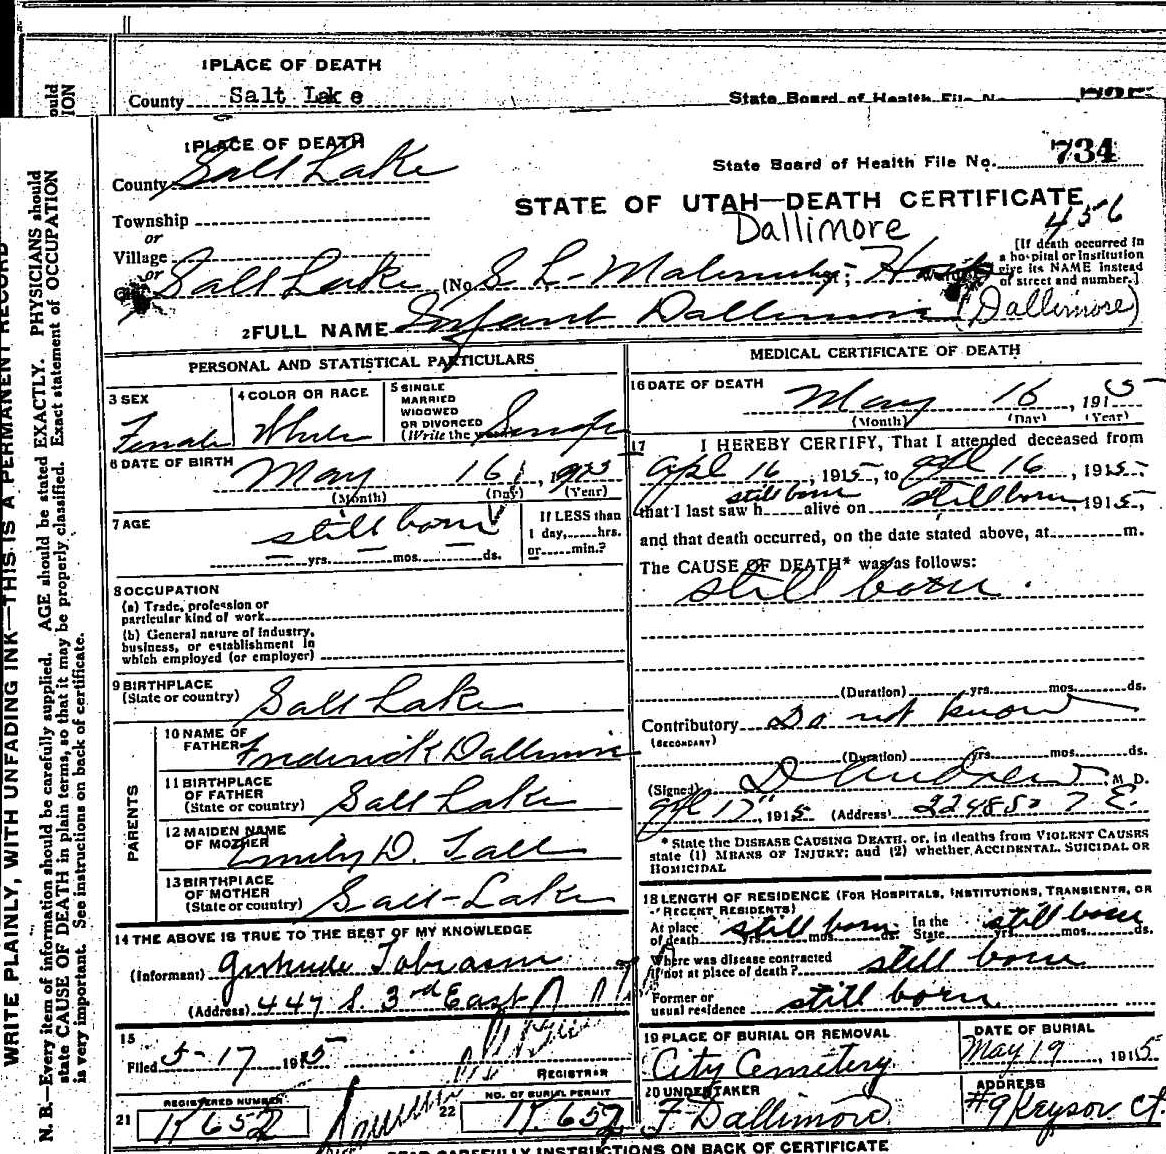 1 PLACE OF DEATH
County Salt Lake State Board of Health File No.
1 PLACE OF DEATH
County Salt Lake
State Board of Health File No. 734
STATE OF UTAH—DEATH CERTIFICATE
Township
or
Village
or
Dallimore 456
[If death occurred in a hospital or Institution give its NAME instead of street and number.]
Salt Lake (No. S L-
2 FULL NAME Infant Dallimore (Dallimore)
PERSONAL AND STATISTICAL PARTICULARS
3 SEX
Female
4 COLOR OR RACE
White
5 SINGLE
MARRIED
WIDOWED
OR DIVORCED
(Write the word) Single
6 DATE OF BIRTH
May 16, 1915
(Month) (Day) (Year)
7 AGE
still born
yrs. mos. ds.
If LESS than
1 day, hrs.
or min.?
8 OCCUPATION
(a) Trade, profession or
particular kind of work
(b) General nature of industry,
business, or establishment in
which employed (or employer)
9 BIRTHPLACE
(State or country) Salt Lake
PARENTS
10 NAME OF
FATHER Frederick Dallimore
11 BIRTHPLACE
OF FATHER
(State or country) Salt Lake
12 MAIDEN NAME
OF MOTHER Emily D. Fall
13 BIRTHPLACE
OF MOTHER
(State or country) Salt-Lake
14 THE ABOVE IS TRUE TO THE BEST OF MY KNOWLEDGE
(Informant) Gertrude
(Address) 447 S. 3rd East
15
Filed 5-17 1915
REGISTRAR
21 REGISTERED NUMBER
K 652
22 NO. OF BURIAL PERMIT
K. 652
MEDICAL CERTIFICATE OF DEATH
16 DATE OF DEATH
May 16, 1915
(Month) (Day) (Year)
17 I HEREBY CERTIFY, That I attended deceased from
Apl 16, 1915, to Apl 16, 1915.
that I last saw h still born alive on still born, 1915,
and that death occurred, on the date stated above, at m.
The CAUSE OF DEATH* was as follows:
still born.
(Duration) yrs. mos. ds.
Contributory Do not know
(SECONDARY)
(Duration) yrs. mos. ds.
(Signed) M D.
Apl 17", 1915 (Address) 2248 So 7 E.
* State the DISEASE CAUSING DEATH, or, in deaths from VIOLENT CAUSES
state (1) MEANS OF INJURY; and (2) whether ACCIDENTAL, SUICIDAL OR
HOMICIDAL
18 LENGTH OF RESIDENCE (FOR HOSPITALS, INSTITUTIONS, TRANSIENTS, OR
RECENT RESIDENTS)
At place
of death still born yrs. mos. ds. In the
State still born yrs. mos. ds.
Where was disease contracted
if not at place of death? still born
Former or
usual residence still born
19 PLACE OF BURIAL OR REMOVAL
City Cemetery
DATE OF BURIAL
May 19, 1915.
20 UNDERTAKER
F Dallimore
ADDRESS
#9 Keysor Ct.
READ CAREFULLY INSTRUCTIONS ON BACK OF CERTIFICATE
WRITE PLAINLY, WITH UNFADING INK—THIS IS A PERMANENT RECORD
N. B.—Every item of information should be carefully supplied. AGE should be stated EXACTLY. PHYSICIANS should
state CAUSE OF DEATH in plain terms, so that it may be properly classified. Exact statement of OCCUPATION
is very important. See instructions on back of certificate.